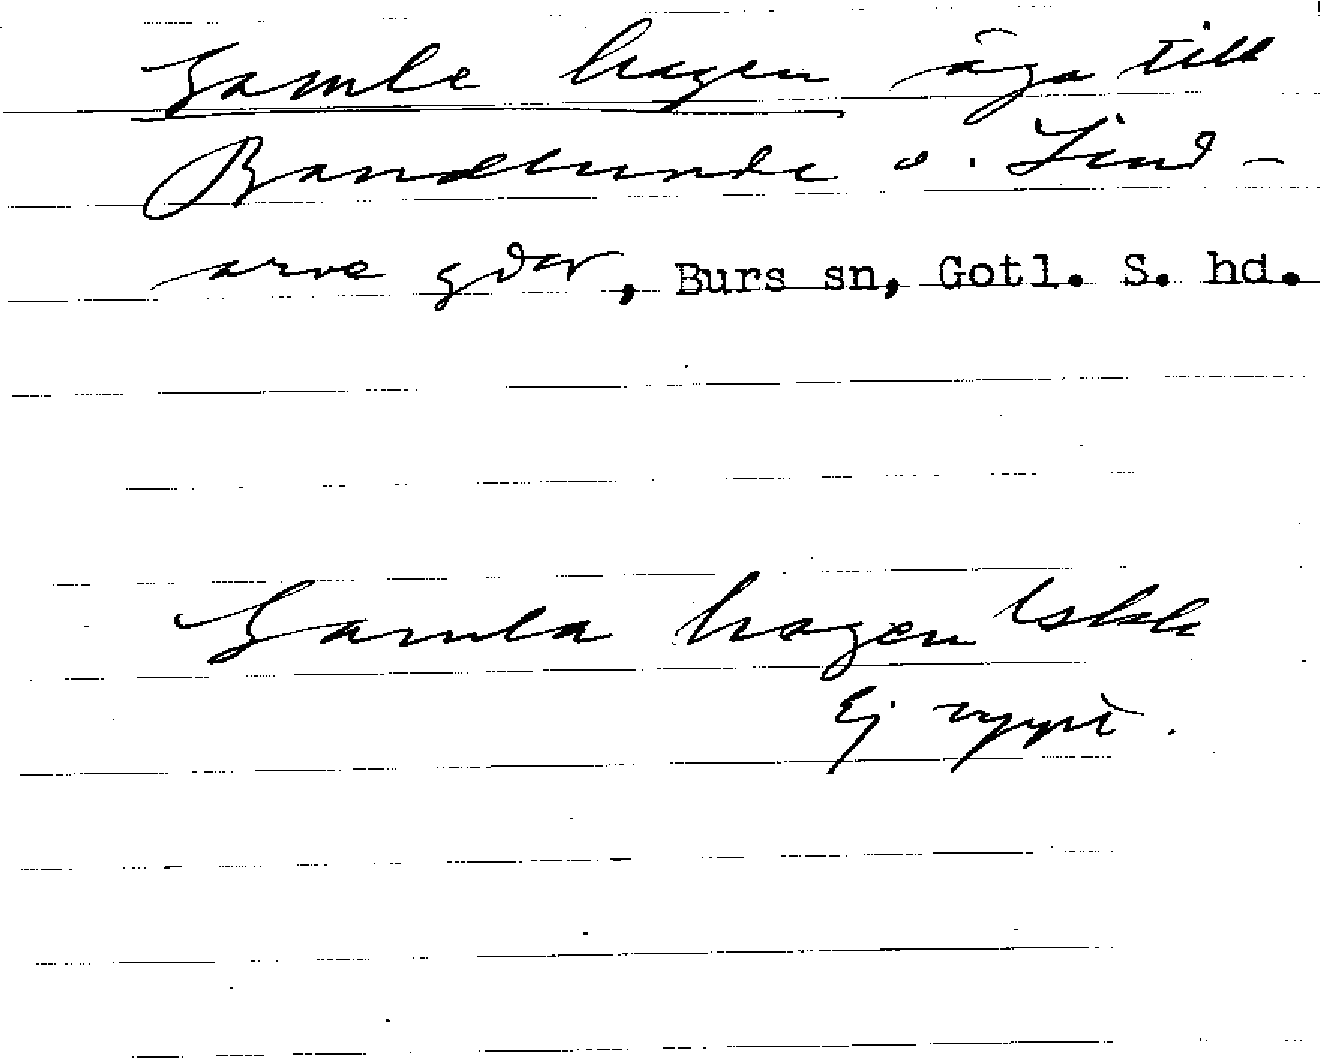 Gamle hagen äga till
Bandlunde o. Lind-
arve gdar, Burs sn, Gotl. S. hd.
Gamla hagen
Ej uppt.